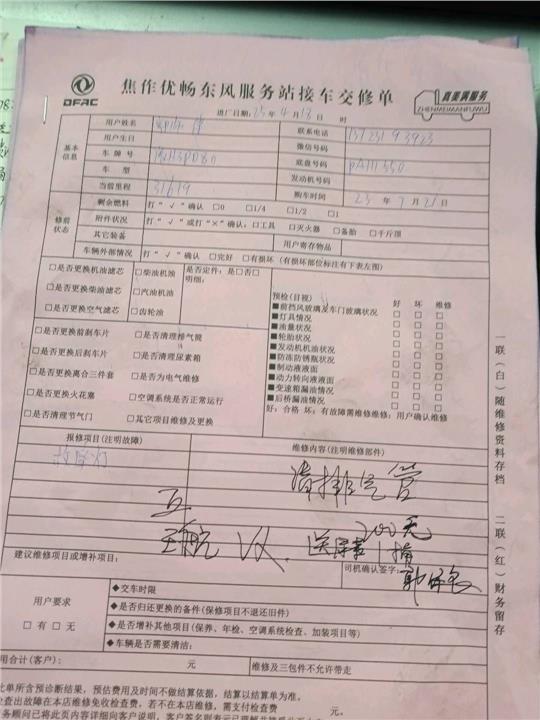 DFAC
焦作优畅东风服务站接车交修单
真里满服务
ZHENMEIMANFUWU
进厂日期：25年4月13日 时
基本信息
用户姓名
联系电话
用户生日
微信号码
车牌号
底盘号码
车型
发动机号码
当前里程 31619
购车时间 23年7月21日
修前状态
剩余燃料 打“√”确认 □0 □1/4 □1/2 □1
附件状况 打“√”或打“×”确认：□工具 □灭火器 □备胎 □千斤顶
其它装备
用户寄存物品
车辆外部情况 打“√”确认 □完好 □有损坏（有损坏部位标注有下表左图）
□是否更换机油滤芯 □柴油机油
□是否更换柴油滤芯 □汽油机油
□是否更换空气滤芯 □齿轮油
是否定件：是□否□
明细：
□是否更换前刹车片 □是否清理排气筒
□是否更换后刹车片 □是否清理尿素箱
□是否更换离合三件套 □是否为电气维修
□是否更换火花塞 □空调系统是否正常运行
□是否清理节气门 □其它项目维修及更换
预检(目视) 好 坏 维修
■前挡风玻璃及车门玻璃状况 □ □ □
■灯具情况 □ □ □
■油量状况 □ □ □
■轮胎状况 □ □ □
■发动机机油状况 □ □ □
■防冻防锈瓶状况 □ □ □
■制动液液面 □ □ □
■动力转向液液面 □ □ □
■变速箱漏油情况 □ □ □
■后桥漏油情况 □ □ □
好：合格 坏：有故障需维修维修：用户确认维修
报修项目(注明故障)
维修内容(注明维修部件)
故障灯
清排气管
200元
建议维修项目或增补项目：
司机确认签字：
用户要求
□有 □无
◆交车时限
◆是否归还更换的备件(保修项目不退还旧件)
◆是否增补其他项目(保养、年检、空调系统检查、加装项目等)
◆车辆是否需要清洁：
用合计(客户)： 元
维修及三包件不允许带走
此单所含预诊断结果，预估费用及时间不做结算依据，结算以结算单为准。
查出故障在本店维修免收检查费，若不在本店维修，需支付检查费 元。
务顾问已将此页内容详细向客户说明，客户签名则表示已理解并接受此页
一联(白)随维修资料存档
二联(红)财务留存